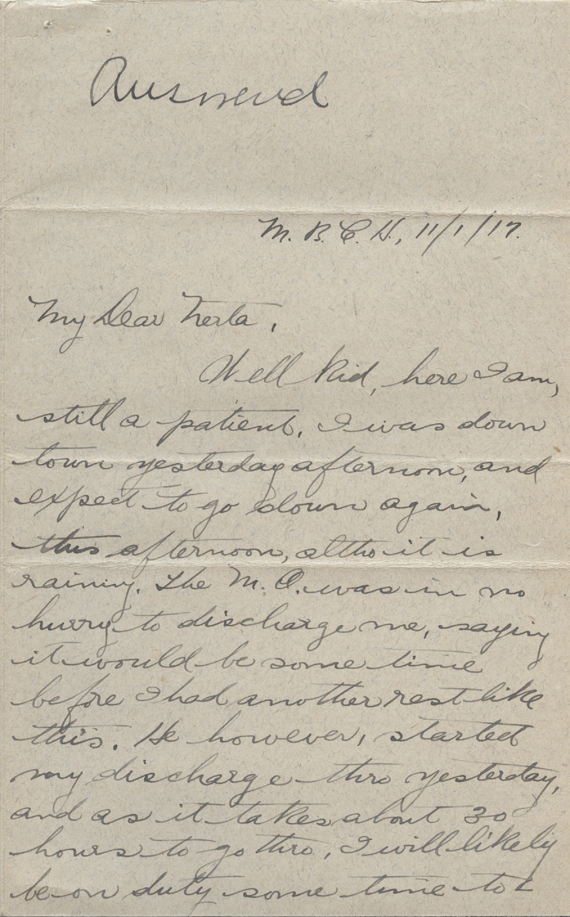 Answered
M. B. C. H., 11/1/17.
My Dear Nerta,
Well Kid, here I am,
still a patient. I was down
town yesterday afternoon, and
expect to go down again,
this afternoon, altho it is
rainy. The M. O. was in no
hurry to discharge me, saying
it would be some time
before I had another rest like
this. He however, started
my discharge thro yesterday,
and as it takes about 30
hours to go thro, I will likely
be on duty some time to